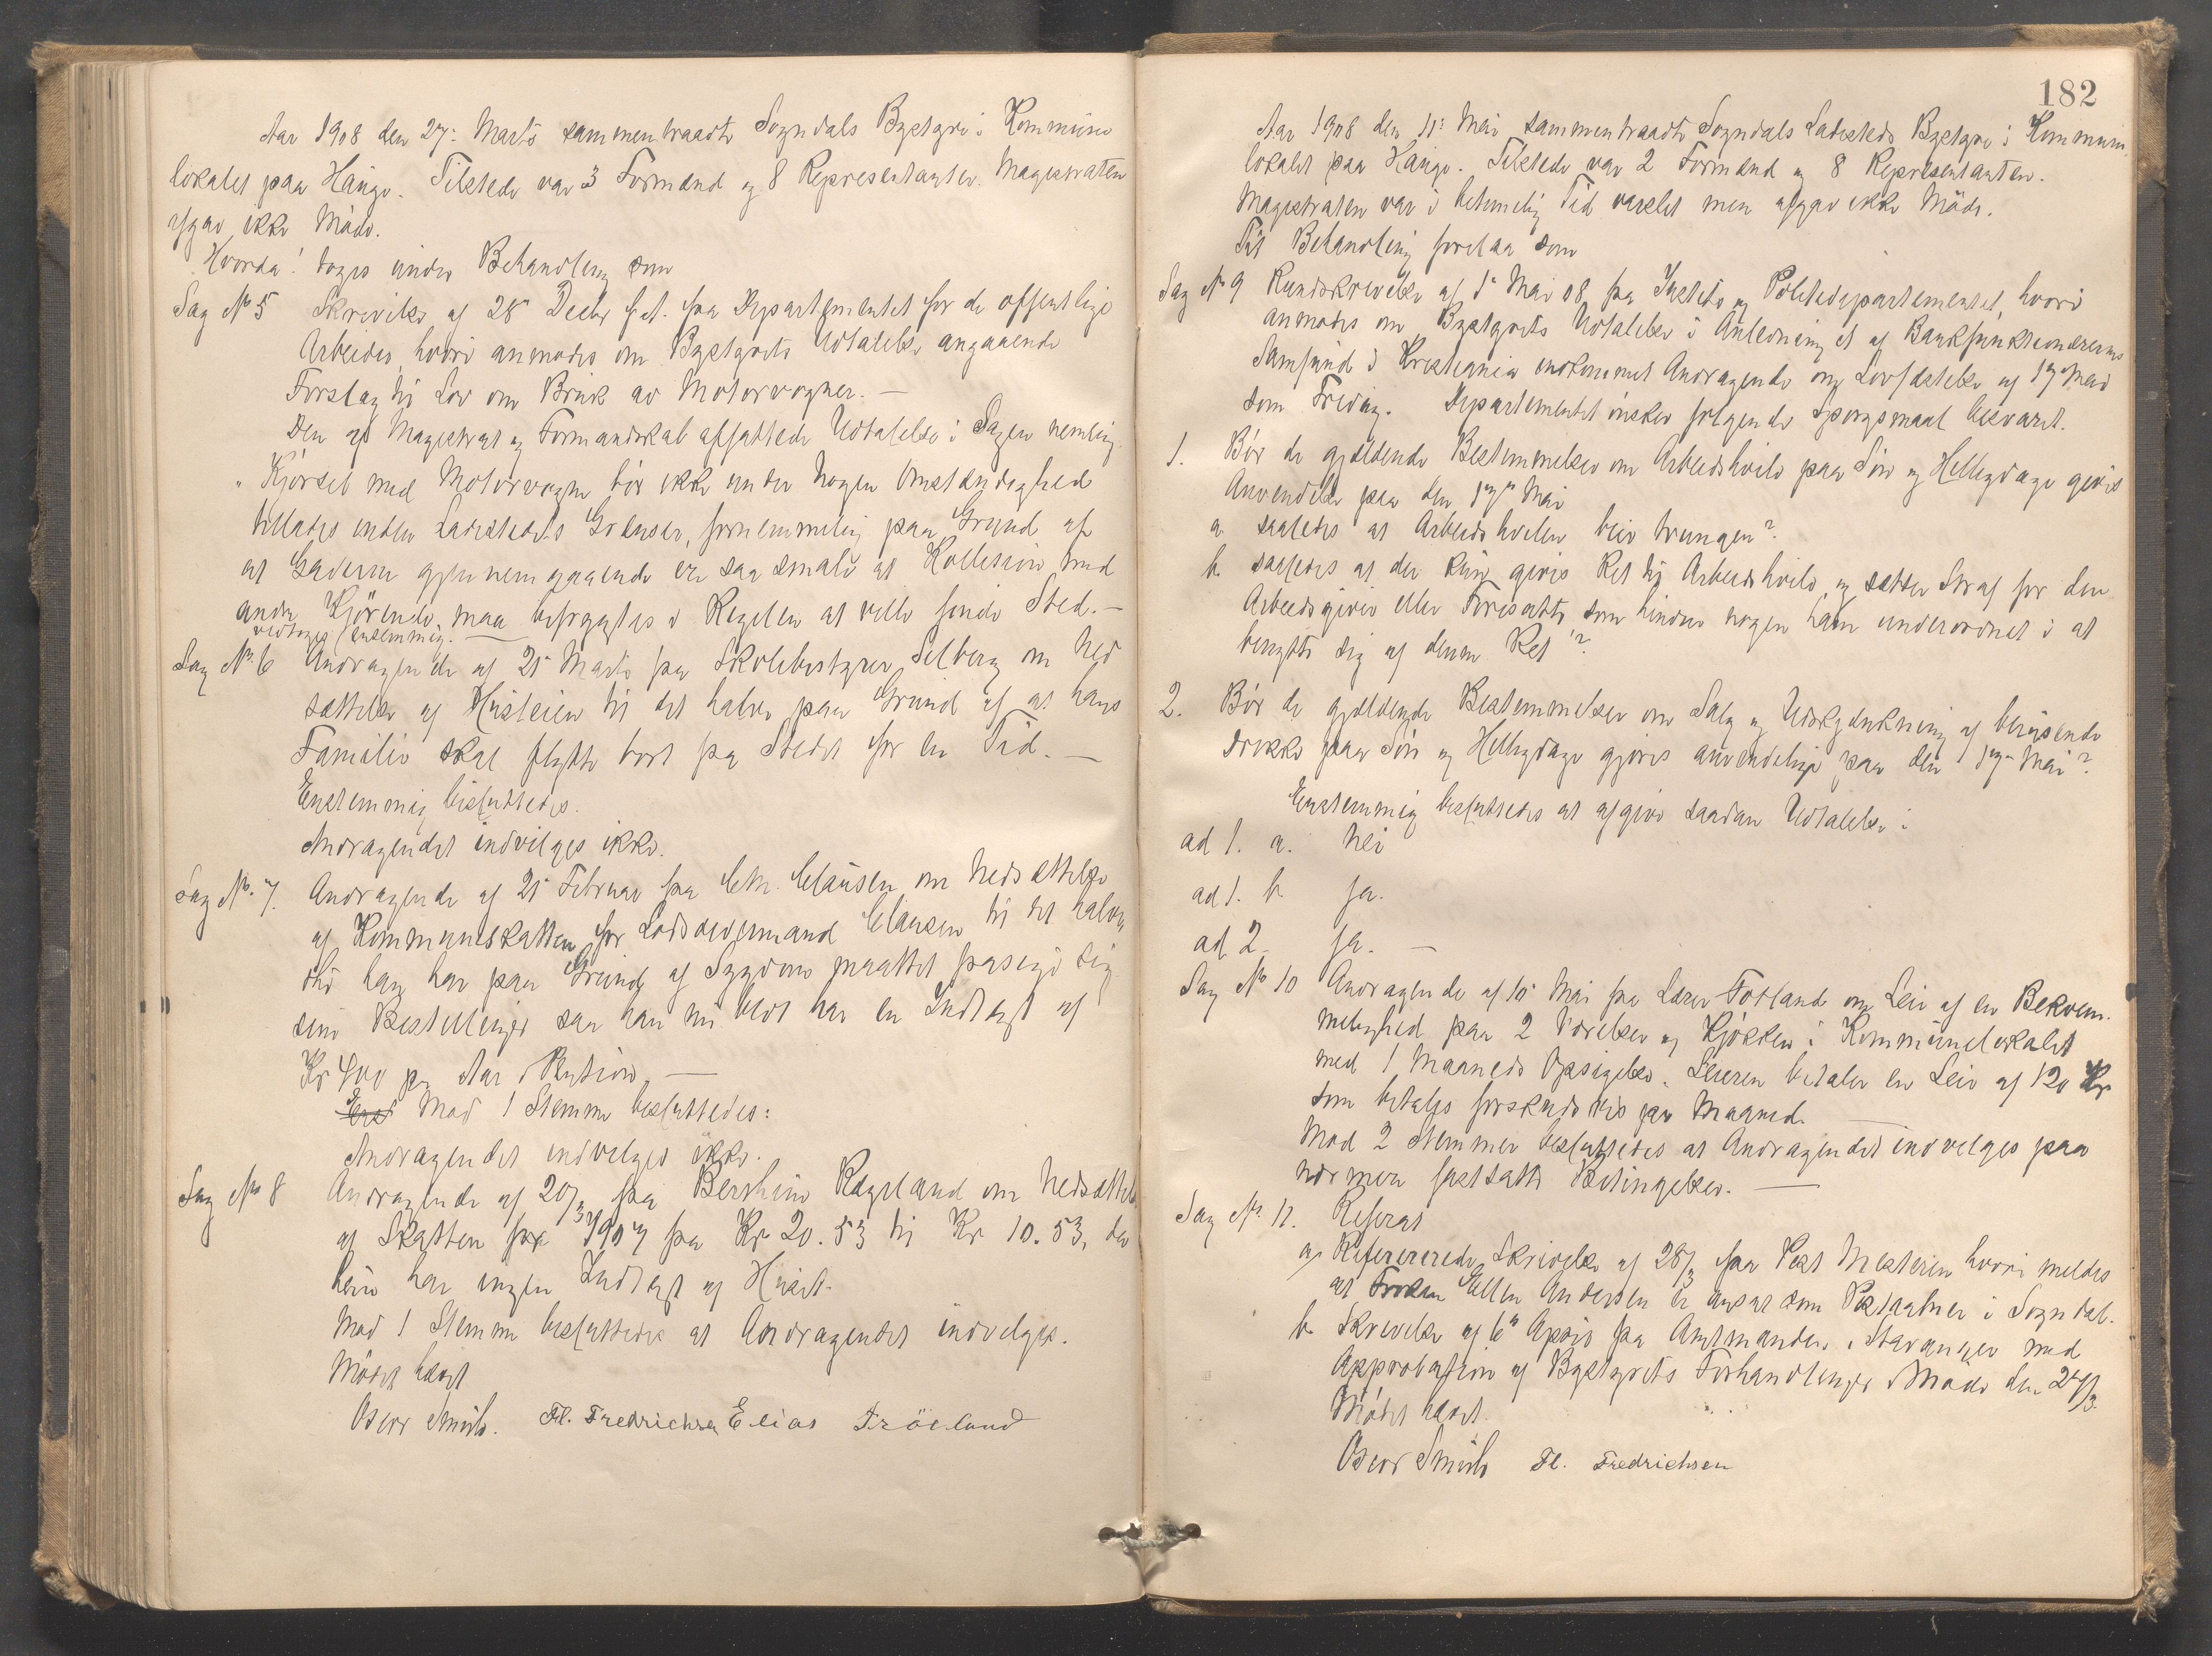 Aar 1908 den 27: Marts sammentraadte Sogndals Bystyre i Kommune
lokalet paa Hauge. Tilstede var 3 Formænd og 8 Repræsentanter. Magistraten
afgav ikke Møde.
Hvorda! toges under Behandling som
Sag No 5 Skrivelse af 28 Decbr f.A. fra Departementet for de offentlige
Arbeider, hvori anmodes om Bystyrets Udtalelse angaaende
Forslag til Lov om Bruk av Motorvogner. —
Den af Magistrat og Formandskab affattede Udtalelse i Sagen nemlig:
"Kjørsel med Motorvogne bør ikke under nogen Omstændighed
tillades inden Ladestedets Grænser, fornemmelig paa Grund af
at Gaderne gjennemgaaende er saa smale at Kollision med
andre Kjørende maa befrygtes i Regelen at ville finde Sted. —
vedtoges enstemmig. —
Sag No. 6 Andragende af 25 Marts fra Skolebestyrer Selberg om Ned
sættelse af Husleien til det halve paa Grund af at hans
Familie skal flytte bort fra Stedet for en Tid. —
Enstemmig besluttedes.
Andragendet indvilges ikke.
Sag No. 7. Andragende af 25 Februar fra Chr. Clausen om Nedsættelse
af Kommuneskatten for Lodsoldermand Clausen til det halve
idet han har paa Grund af Sygdom maattet frasige sig
sine Bestillinger saa han nu blot har en Indtægt af
Kr 400 pr Aar i Pension. —
Ens Mod 1 Stemme besluttedes:
Andragendet indvilges ikke.
Sag No 8 Andragende af 20/3 fra Berthine Rægeland om Nedsættelse
af Skatten for 1907 fra Kr 20.53 til Kr 10.53, da
hun har ingen Indtægt af Huset.
Mod 1 Stemme besluttedes at Andragendet indvilges.
Mødet hævet
Oscar Smith. Fl. Fredrichsen Elias Fröiland
182
Aar 1908 den 11: Mai sammentraadte Sogndals Ladesteds Bystyre i Kommune
lokalet paa Hauge. Tilstede var 2 Formænd og 8 Repræsentanter.
Magistraten var i betimelig Tid varslet men afgav ikke Møde.
Til Behandling forelaa som
Sag No 9 Rundskrivelse af 1 Mai 08 fra Justits og Politidepartementet, hvori
anmodes om Bystyrets Udtalelse i Anledning et af Bankfunktionærernes
Samfund i Kristiania indkommet Andragende om Lovfæstelse af 17 Mai
som Fridag. Departementet ønsker følgende Spørgsmaal besvaret.
1. Bør de gjældende Bestemmelser om Arbeidshvile paa Søn og Helligdage gives
Anvendelse paa den 17de Mai
a saaledes at Arbeidshvilen blir tvungen?
b. saaledes at der kun gives Ret til Arbeidshvile, og sættes Straf for den
Arbeidsgiver eller Foresatte som hindrer nogen ham underordnet i at
benytte sig af denne Ret?
2. Bør de gjældende Bestemmelser om Salg og Udskjænkning af berusende
Drikke paa Søn og Helligdage gjøres anvendelige paa den 17de Mai?
Enstemmig besluttedes at afgive saadan Udtalelse:
ad 1. a. Nei
ad 1. b. Ja.
ad 2. Ja. —
Sag No 10 Andragende af 10 Mai fra Lærer Fotland om Leie af en Bekvem-
melighed paa 2 Værelser og Kjøkken i Kommunelokalet
med 1 Maaneds Opsigelse. Leieren betaler en Leie af 120 Kr
som betales forskudsvis pr Maaned. —
Mod 2 Stemmer besluttedes at Andragendet indvilges paa
nærmere fastsatte Betingelser. —
Sag No. 11. Referat
a Refererede Skrivelse af 28/3 fra Postmesteren hvori meldes
at Frøken Ellen Andersen er ansat som Postaabner i Sogndal.
b. Skrivelse af 6 April fra Amtmanden i Stavanger med
Approbation af Bystyrets Forhandlinger i Møde den 27/3.
Mødet hævet.
Oscar Smith Fl. Fredrichsen